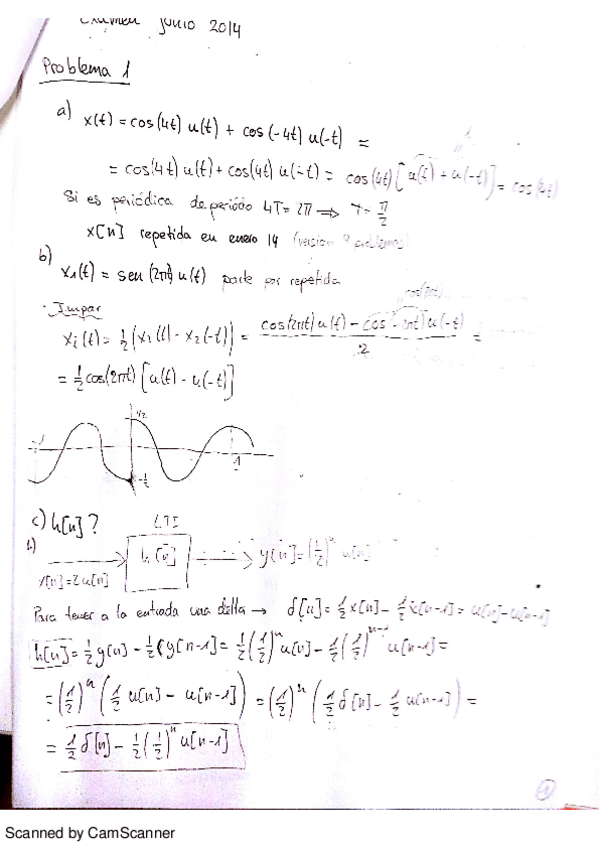 Examen junio 2014
Problema 1
a) x(t) = cos(4t) u(t) + cos(-4t) u(-t) =
= cos(4t) u(t) + cos(4t) u(-t) = cos(4t) [u(t) + u(-t)] = cos(4t)
Si es periódica de periodo 4T = 2π ⟹ T = π/2
x[n] repetida en enero 14
b)
x₁(t) = sen(2πt) u(t) parte par repetida
· Impar
xᵢ(t) = ½(x₂(t) - x₂(-t)) = (cos(2πt) u(t) - cos(-2πt) u(-t))/2 =
= ½ cos(2πt) [u(t) - u(-t)]
1/2
-1
1
-½
c) h[n]?
LTI
1)
h[n]
y[n] = (½)ⁿ u[n]
x[n] = 2u[n]
Para tener a la entrada una delta → δ[n] = ½x[n] - ½x[n-1] = u[n] - u[n-1]
h[n] = ½y[n] - ½y[n-1] = ½(½)ⁿ u[n] - ½(½)ⁿ⁻¹ u[n-1] =
= (½)ⁿ (½ u[n] - u[n-1]) = (½)ⁿ (½ δ[n] - ½ u[n-1]) =
= ½ δ[n] - ½(½)ⁿ u[n-1]
1
Scanned by CamScanner